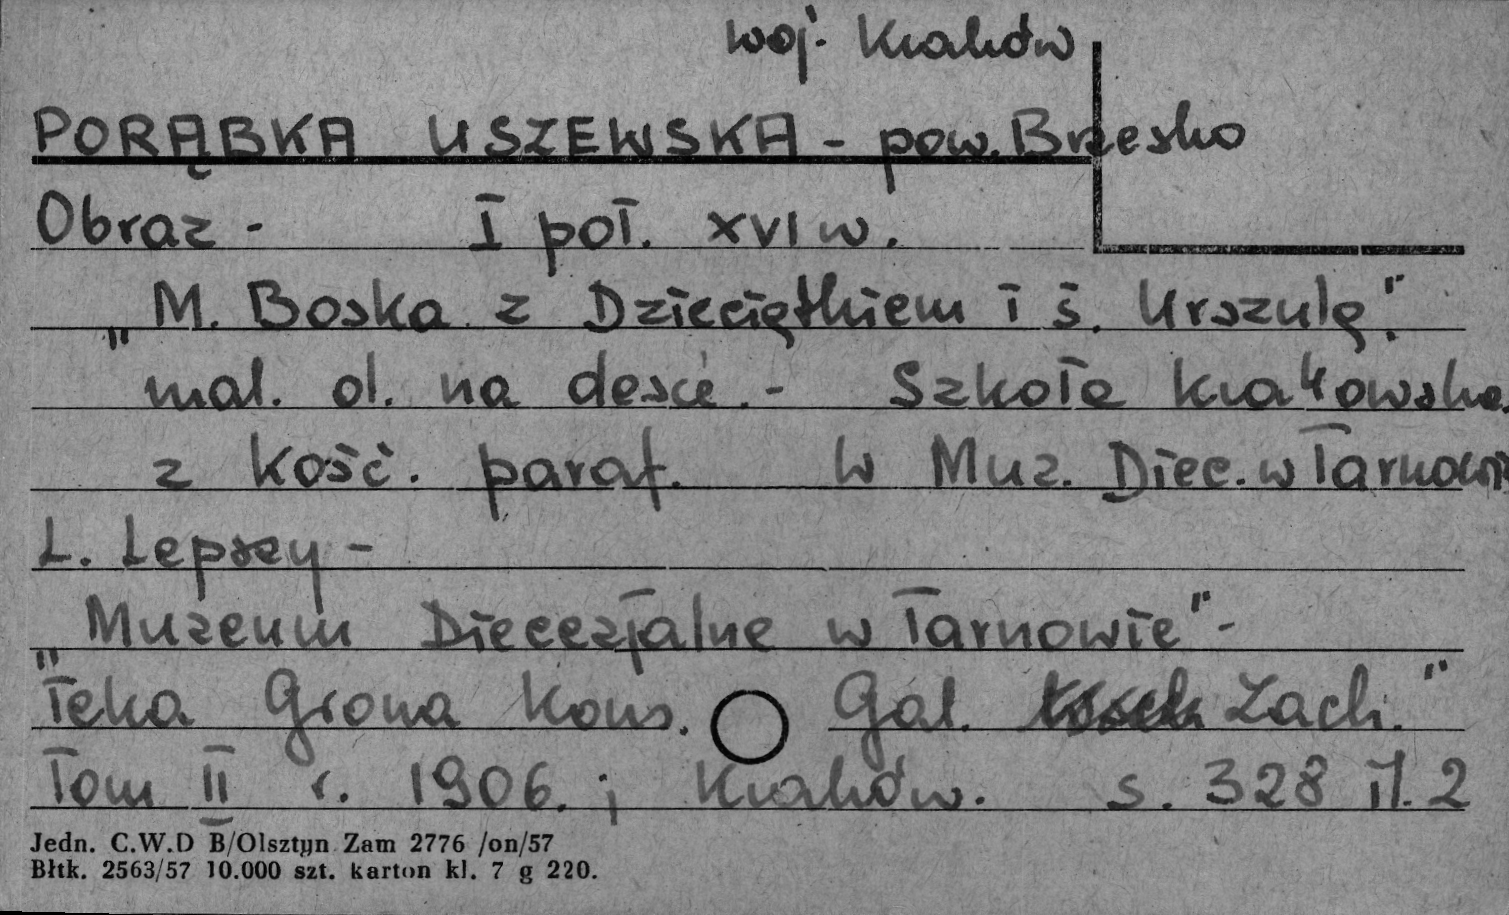 woj. Kraków
PORĄBKA USZEWSKA - pow. Brzesko
Obraz - I poł. XVI w.
„M. Boska z Dzieciątkiem i ś. Urszulą".
mal. ol. na desce. - Szkoła krakowska.
z kość. paraf. W Muz. Diec. w Tarnowie
L. Lepszy -
„Muzeum Diecezjalne w Tarnowie" -
„Teka Grona Kons. Gal. Zach."
Tom II r. 1906. ; Kraków. s. 328 il. 2
Jedn. C.W.D B/Olsztyn Zam 2776 /on/57
Błtk. 2563/57 10.000 szt. karton kl. 7 g 220.